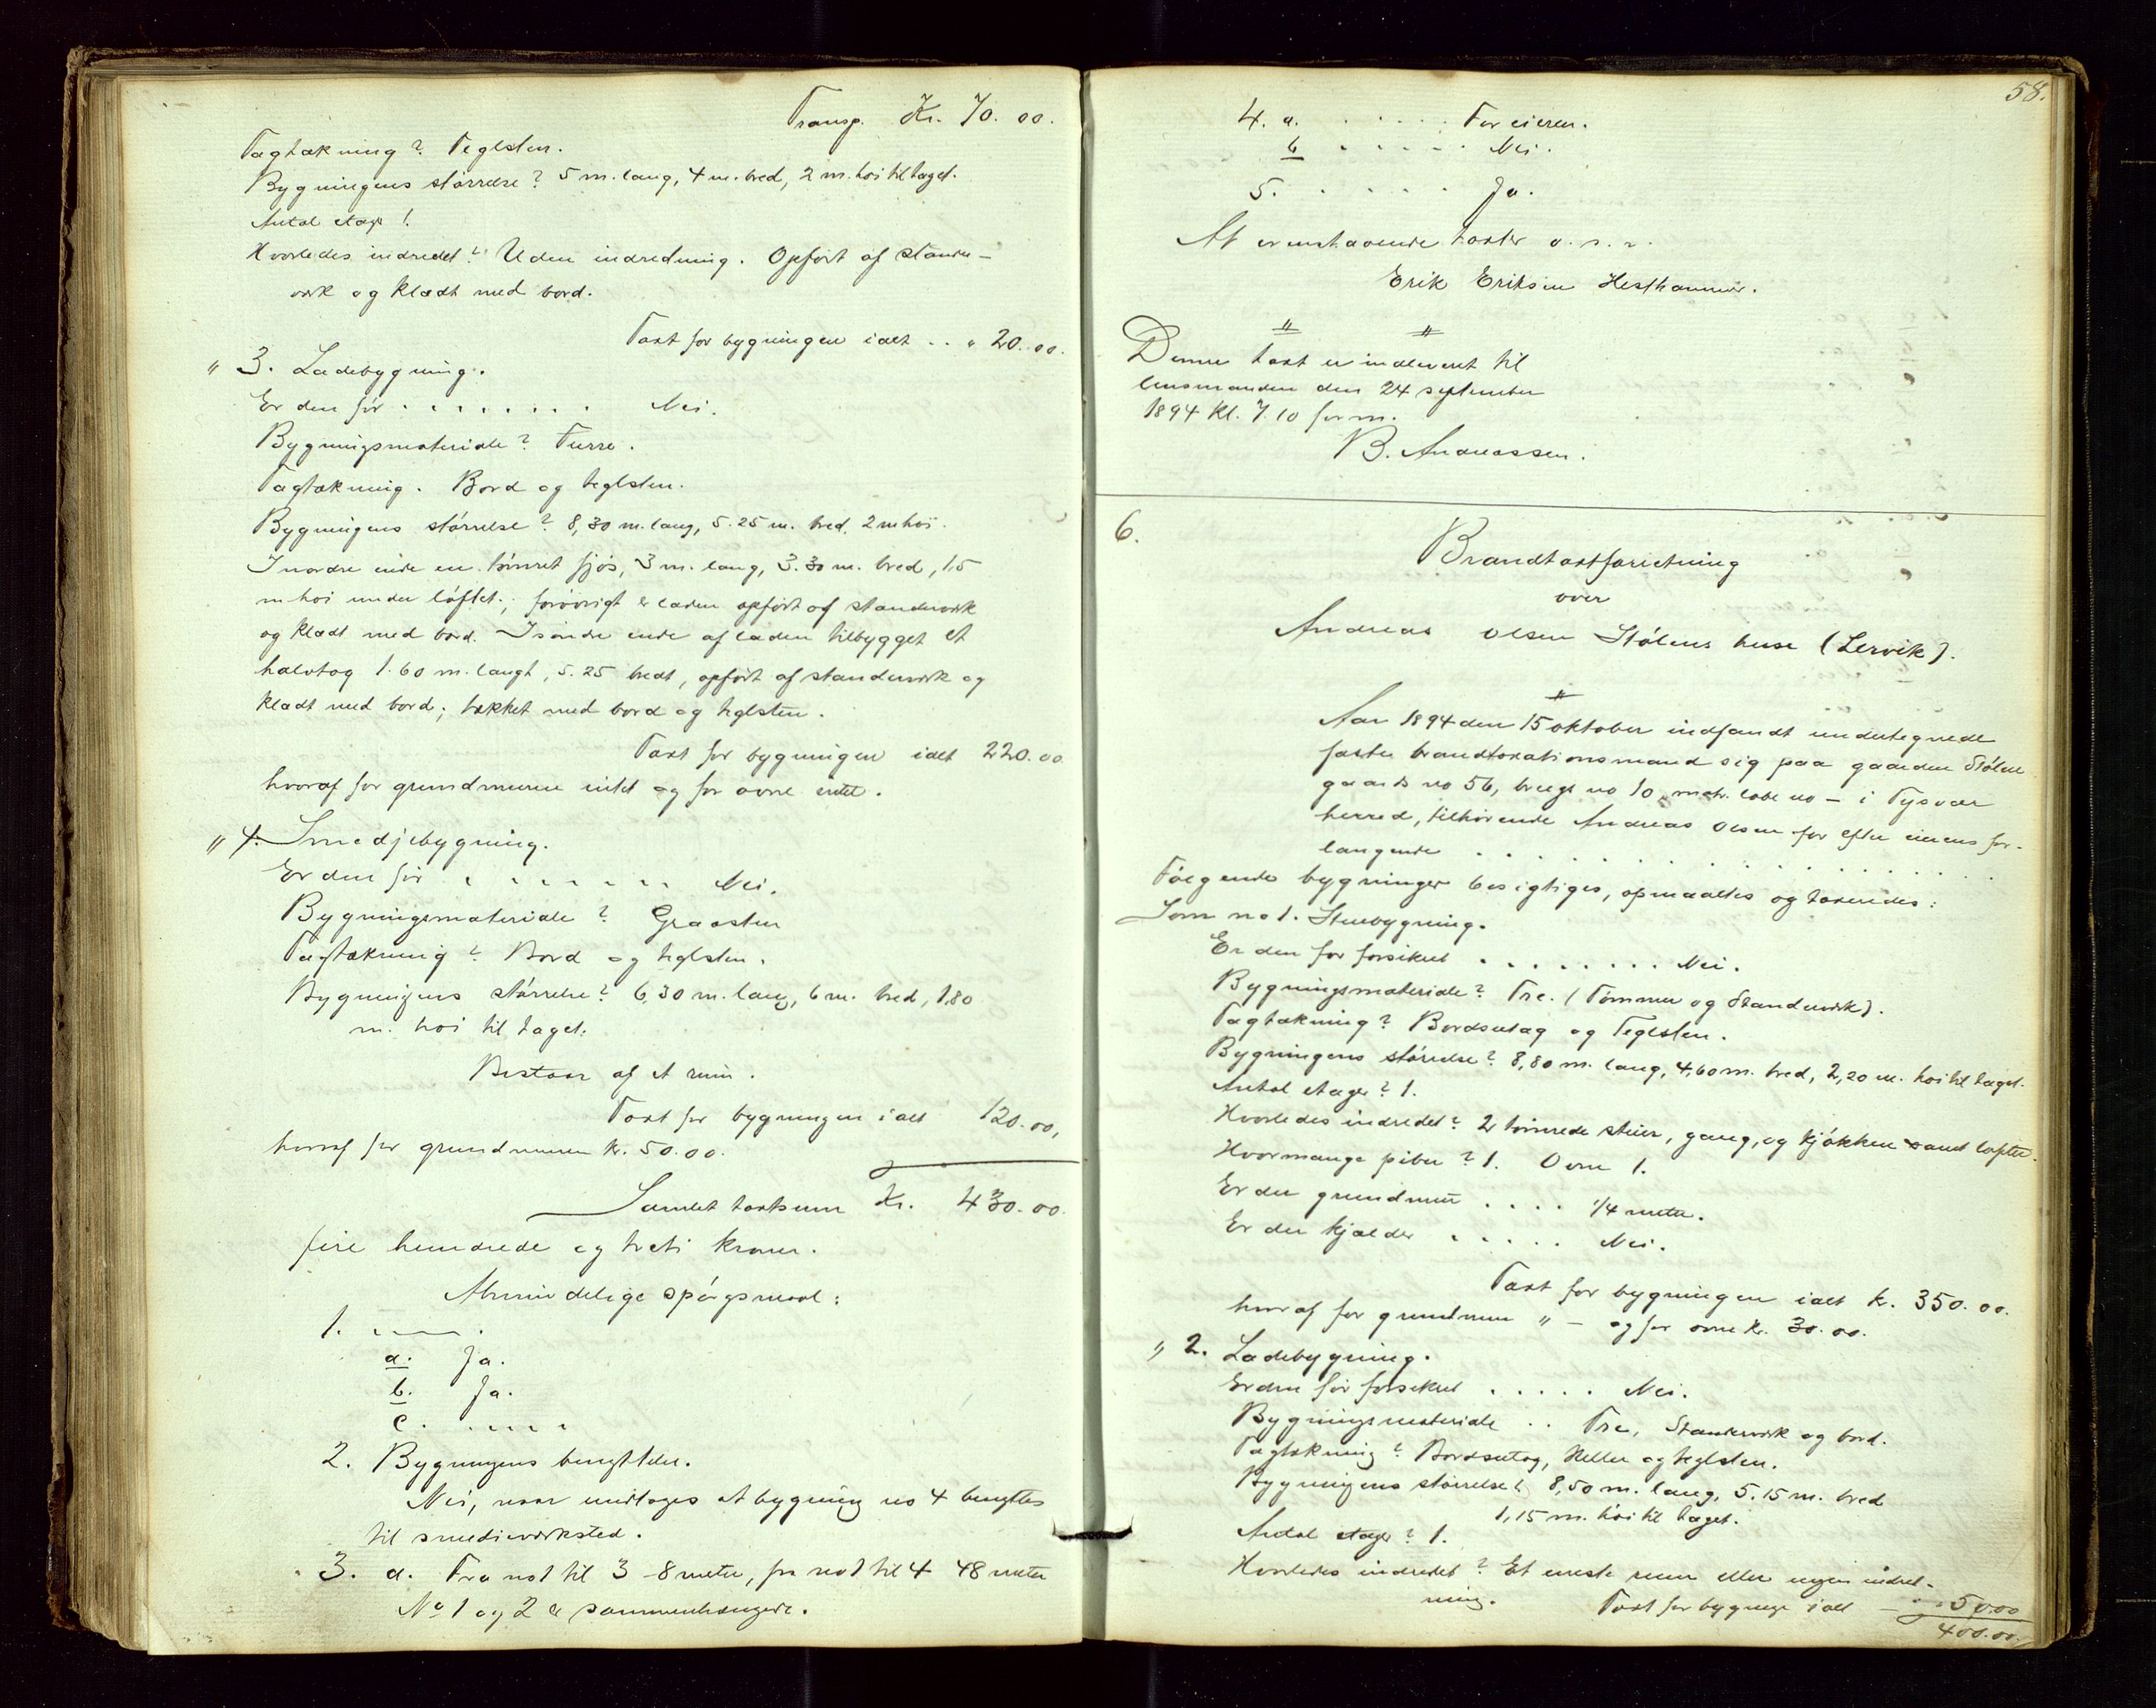 Transp. Kr. 70.00.
Tagtækning? Teglsten.
Bygningens størrelse? 5 m. lang, 4 m. bred, 2 m. høi til taget.
Antal etager 1.
Hvorledes indredet? Uden indredning. Opført af stander-
værk og klædt med bord.
Taxt for bygningen ialt . . " 20.00.
" 3. Ladebygning.
Er den før . . . . . . . Nei.
Bygningsmateriale? Furre.
Tagtækning. Bord og teglsten.
Bygningens størrelse? 8,30 m. lang, 5.25 m. bred, 2 m høi.
I nordre ende en tømret fjøs, 3 m. lang, 3.30 m. bred, 1,5
m høi under løftet; forøvrigt er laden opført af standerværk
og klædt med bord. I søndre ende af laden tilbygget et
halvtag 1.60 m. langt, 5.25 bredt, opført af standerværk og
klædt med bord; tækket med bord og teglsten.
Taxt for bygningen ialt 220.00
hvoraf for grundmuren intet og for ovne intet.
" 4. Smedjebygning.
Er den før . . . . . . . Nei.
Bygningsmateriale? Graasten
Tagtækning? Bord og teglsten.
Bygningens størrelse? 6,30 m. lang, 6 m. bred, 1,80
m. høi til taget.
Bestaar af et rum.
Taxt for bygningen ialt 120.00,
hvoraf for grundmuren kr. 50.00.
Samlet taxtsum Kr. 430.00.
fire hundrede og treti kroner.
Almindelige spørgsmaal:
1. . . . . .
a. Ja.
b. Ja.
c. . . . . .
2. Bygningens benyttelse.
Nei, naar undtages at bygning no 4 benyttes
til smedieværksted.
3. a. Fra no 1 til 3 - 8 meter, fra no 1 til 4 48 meter
No 1 og 2 er sammenhængende.
58.
4. a. . . . . . For eieren.
b . . . . . Nei.
5. . . . . . Ja.
At ovenstaaende taxter o. s. v.
Erik Eriksen Hesthammer.
Denne taxt er indleveret til
lensmanden den 24 september
1894 kl. 7.10 form.
B. Andreassen.
6.
Brandtaxtforretning
over
Andreas Olsen Stølens huse (Lervik).
Aar 1894 den 15 oktober indfandt undertegnede
faste brandtaxationsmænd sig paa gaarden Stølen
gaards no 56, brugs no 10, matr. løbe no - i Tysvær
herred, tilhørende Andreas Olsen for efter eierens for-
langende . . . . . . . . . . . . .
Følgende bygninger besigtiges, opmaaltes og taxeredes:
Som no 1. Stuebygning.
Er den før forsikret . . . . . . . . Nei.
Bygningsmateriale? Træ. (Tømmer og Standerværk).
Tagtækning? Bordsutag og Teglsten.
Bygningens størrelse? 8,80 m. lang, 4,60 m. bred, 2,20 m. høi til taget.
Antal etager? 1.
Hvorledes indredet? 2 tømrede stuer, gang, og kjøkken samt lofter.
Hvormange piber? 1. Ovne 1.
Er der grundmur . . . . 1/4 meter.
Er der kjælder . . . . . Nei.
Taxt for bygningen ialt kr. 350.00.
hvoraf for grundmur " - og for ovne kr. 30.00.
" 2. Ladebygning.
Er den før forsikret . . . . . Nei.
Bygningsmateriale . . Træ, Standerværk og bord.
Tagtækning? Bordsutag, Heller og teglsten.
Bygningens størrelse? 8,50 m. lang, 5.15 m. bred
1,15 m. høi til taget.
Antal etager? 1.
Hvorledes indredet? Et eneste rum eller ingen indred-
ning.
Taxt for bygningen ialt " 50.00
400.00.